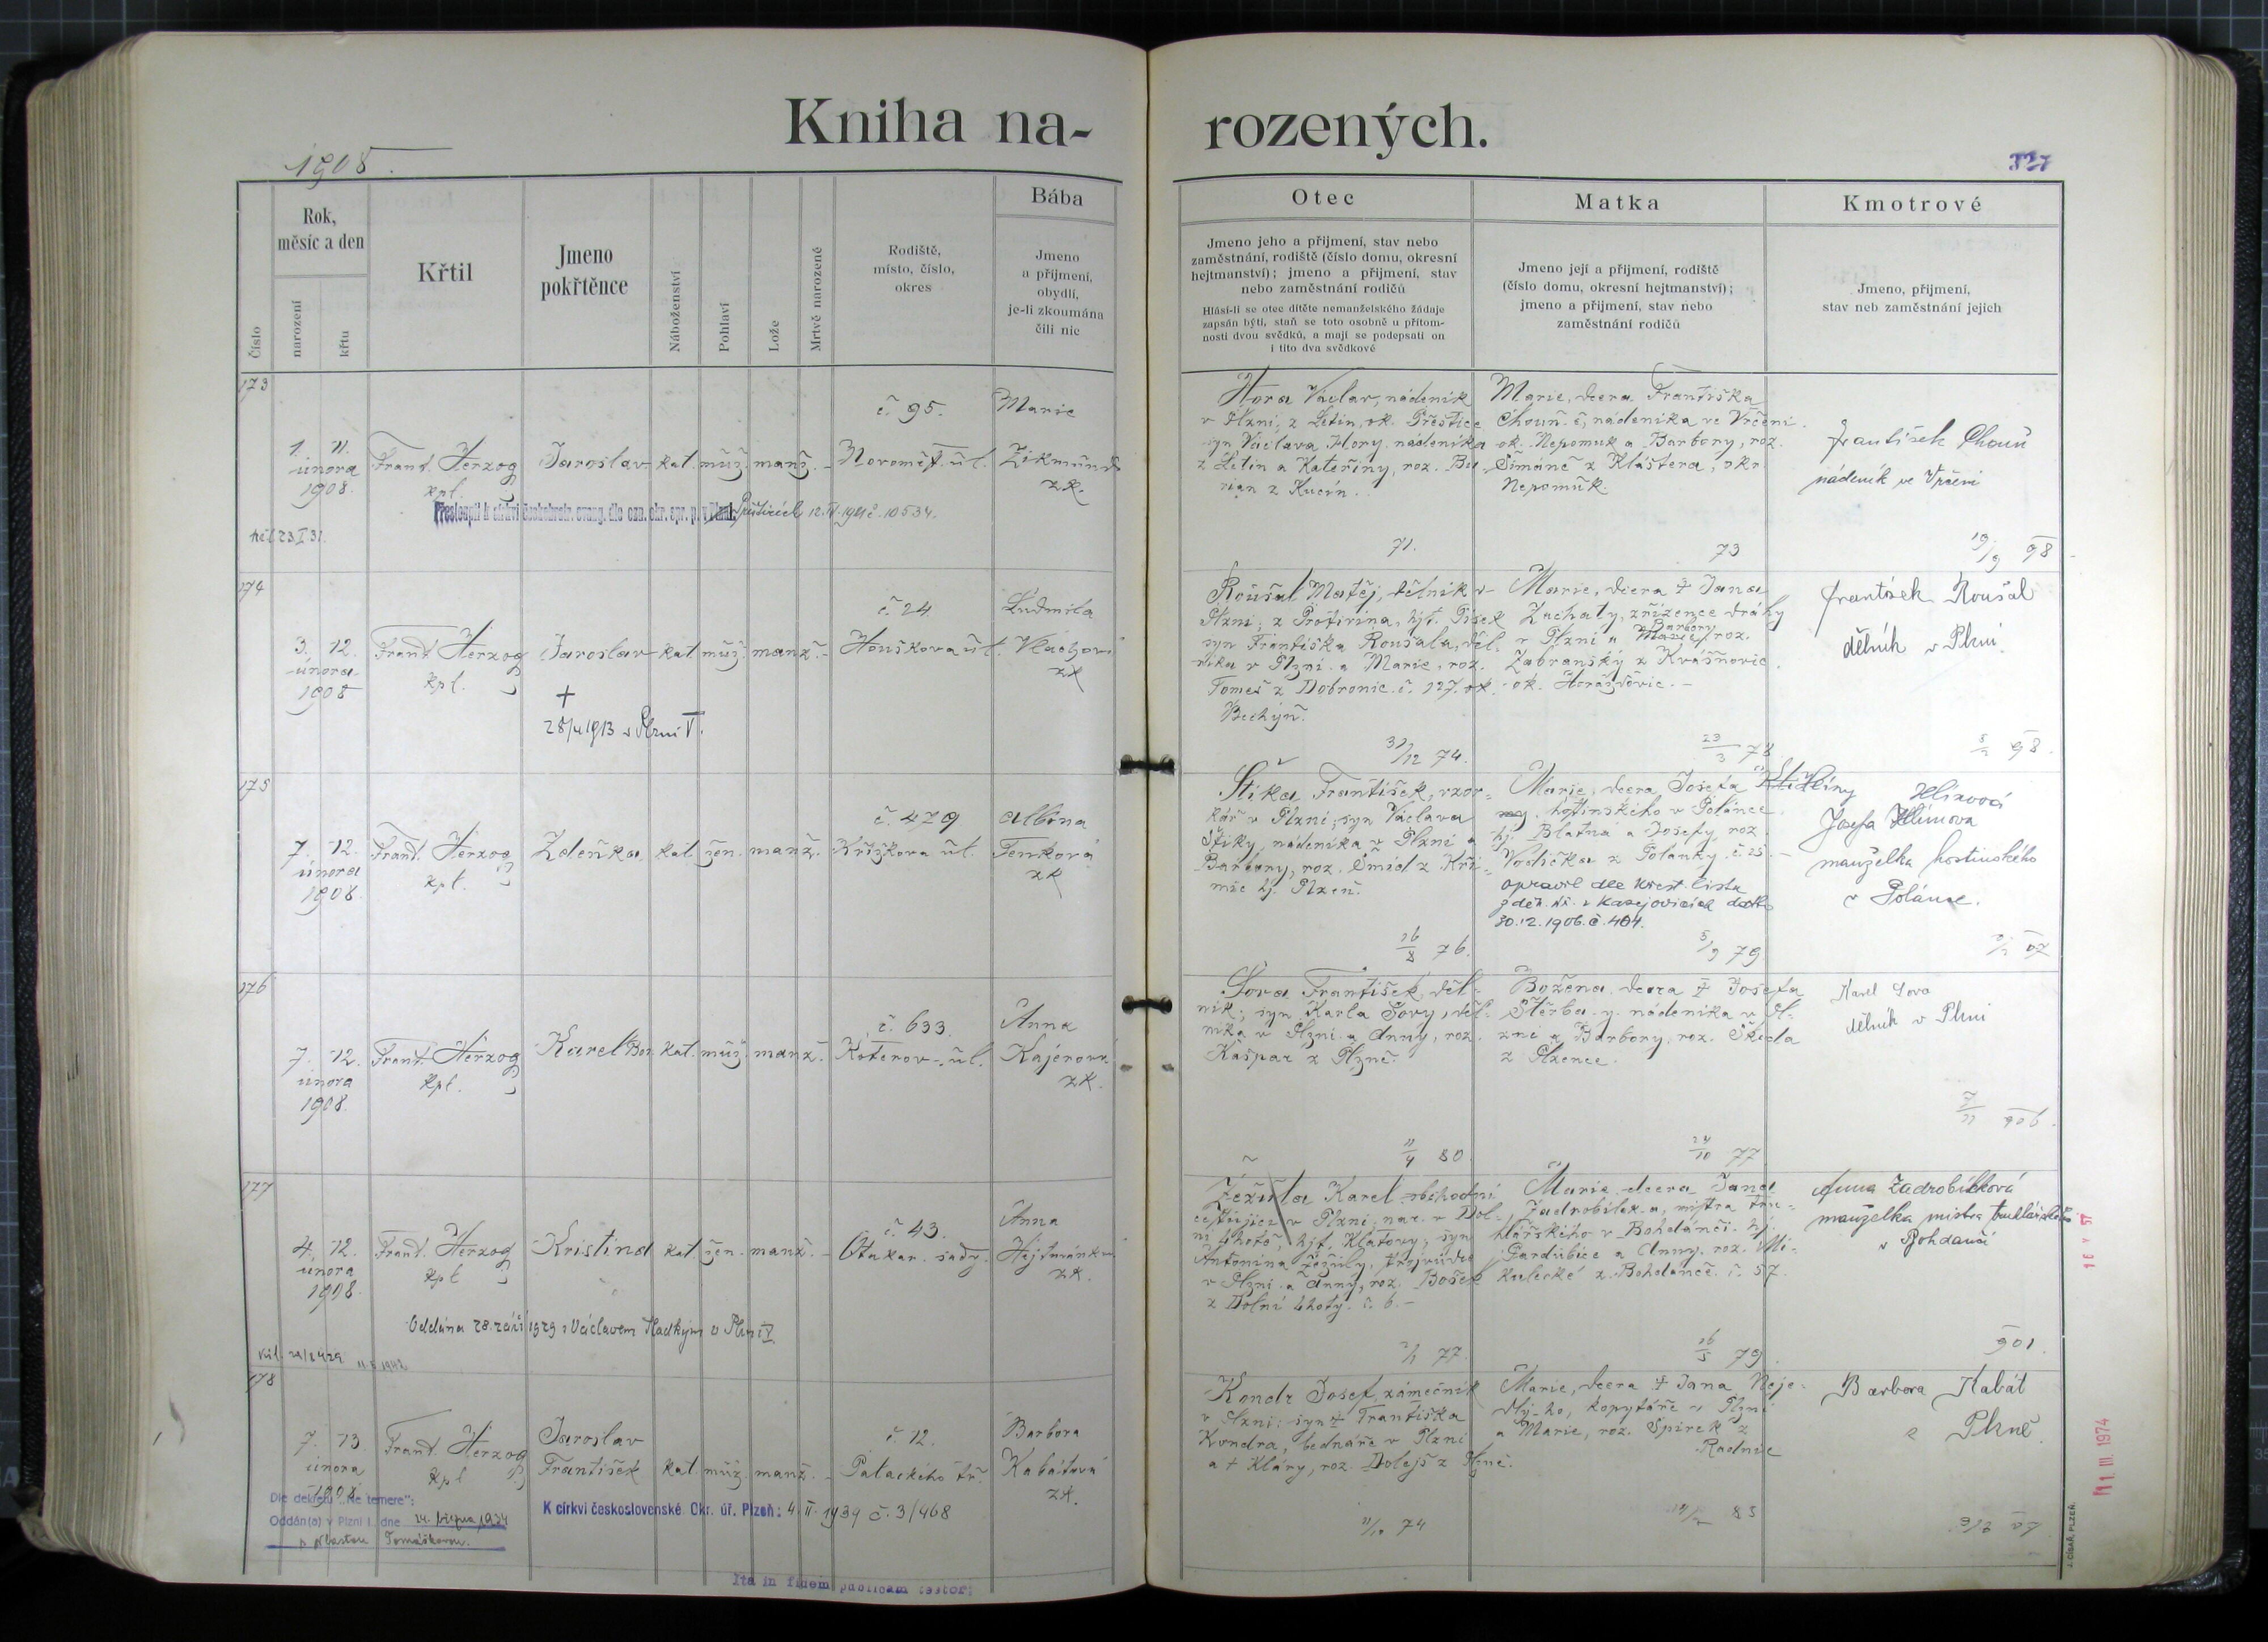 Kniha na-
rozených.
1908.
327
Číslo
Rok,
měsíc a den
narození
křtu
Křtil
Jmeno
pokřtěnce
Náboženství
Pohlaví
Lože
Mrtvě narozené
Rodiště,
místo, číslo,
okres
Bába
Jmeno
a příjmení,
obydlí,
je-li zkoumána
čili nic
Otec
Jmeno jeho a příjmení, stav nebo
zaměstnání, rodiště (číslo domu, okresní
hejtmanství); jmeno a příjmení, stav
nebo zaměstnání rodičů
Hlásí-li se otec dítěte nemanželského žádaje
zapsán býti, staň se toto osobně u přítom-
nosti dvou svědků, a mají se podepsati on
i tito dva svědkové
Matka
Jmeno její a příjmení, rodiště
(číslo domu, okresní hejtmanství);
jmeno a příjmení, stav nebo
zaměstnání rodičů
Kmotrové
Jmeno, příjmení,
stav neb zaměstnání jejich
173
1. 11.
února
1908.
Frant. Herzog
kpl.
Jaroslav
kat. muž. manž.
č. 95.
Novoměst. ul.
Marie
Zikmund
zk.
12.III.1921 č. 10534.
23.I.31.
Hora Václav, nádeník
v Plzni, z Letin, ok. Přeštice
syn Václava Hory, nádeníka
z Letin a Kateřiny, roz. Bu-
rian z Kucín.
71.
Marie, dcera Františka
Chouň-ě, nádeníka ve Vrčeni
ok. Nepomuk a Barbory, roz.
Šimáně z Kláštera, okr.
Nepomuk.
73
František Chouň
nádeník ve Vrčeni
19/9 98
174
3. 12.
února
1908
Frant. Herzog
kpl.
Jaroslav
+
28/4 1913 v Plzni V.
kat. muž. manž.
č. 24
Houškova ul.
Ludmila
zk
Roušal Matěj, dělník v
Plzni, z Protivína, hjt. Písek
syn Františka Roušala, děl-
níka v Plzni a Marie, roz.
Tomeš z Dobronic č. 127. ok.
Bechyň.
31/12 74.
Marie, dcera + Jana
Zuchaty, zřízence dráhy
Barbory
v Plzni a Marie, roz.
Zábranský z Kvášňovic
ok. Horažďovic.
23/3 78
František Roušal
dělník v Plzni.
8/2 98.
175
7. 12.
února
1908.
Frant. Herzog
kpl.
Zdeňka
kat. žen. manž.
č. 479
Křižkova ul.
Albina
Tenková
zk
Štika František, vzor-
kář v Plzni, syn Václava
Štiky, nádeníka v Plzni a
Barbory, roz. Šmíd z Kři-
mic hj. Plzeň.
26/8 76.
Marie, dcera Josefa
hostinského v Polánce
hj. Blatná a Josefy roz.
Vodička z Polánky č. 25.
opravil dle křest. listu
z děk. úř. v Kasejovicích dto
30.12.1906. č. 404.
5/9 79
Josefa Klímova
manželka hostinského
v Polánce.
176
7. 12.
února
1908.
Frant. Herzog
kpl.
Karel
kat. muž. manž.
č. 633.
Koterov. ul.
Anna
Kajerová
zk.
Sova František, děl-
ník, syn Karla Sovy, děl-
níka v Plzni a Anny, roz.
Kašpar z Plzně.
11/4 80.
Božena, dcera + Josefa
Štěrba-y, nádeníka v Pl-
zni a Barbory, roz. Škoda
z Plzence.
24/10 77
Karel Sova
dělník v Plzni
906.
177
4. 12.
února
1908.
Frant. Herzog
kpl
Kristina
kat. žen. manž.
č. 43.
Otakar. sady.
Anna
zk.
Oddána 28. září 1929 s Václavem Hladkým v Plzni V
11.5.1942
Žežula Karel, obchodní
cestující v Plzni, nar. v Dol-
ní Lhotě, hjt. Klatovy, syn
Antonína Žežuly,
v Plzni a Anny, roz. Bošek
z Dolní Lhoty č. 6.
77.
Marie, dcera Jana
Zadrobílek-a, mistra tru-
hlářského v Bohdánči hj.
Pardubice a Anny, roz. Mi-
kulecké z Bohdanče č. 57.
26/5 79
Anna Zadrobílková
manželka mistra truhlářského
v Bohdanči
901.
16 V 57
178
7. 13.
února
1908.
Frant. Herzog
kpl
Jaroslav
František
kat. muž. manž.
č. 12.
Palackého tř.
Barbora
Kabátová
zk.
Dle dekretu „Ne temere":
Oddán(a) v Plzni I. dne 24. března 1934
s Vlastou Tomáškovou.
K církvi československé Okr. úř. Plzeň: 4. II. 1939 č. 3/468
Kondr Josef, zámečník
v Plzni, syn + Františka
Kondra, bednáře v Plzni
a + Kláry, roz. Dolejš z Plzně.
74
Marie, dcera + Jana Neje-
dlý-ho, kopytáře v Plzni
a Marie, roz. Spirek z
Radnic
85
Barbora Kabát
z Plzně
11. III. 1974
Ita in fidem publicam testor:
J. CÍSAŘ, PLZEŇ.